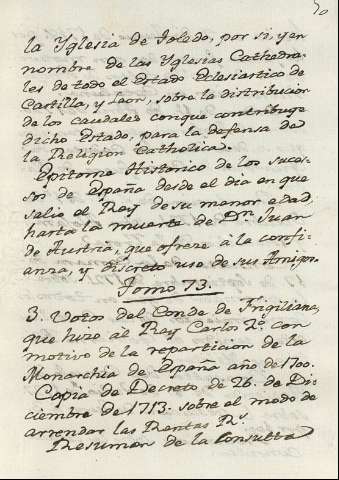 70
la Yglesia de Toledo, por si, y en
nombre de las Yglesias Cathedra-
les de todo el Estado Eclesiastico de
Castilla, y Leon, sobre la distribucion
de los caudales con que contribuye
dicho Estado, para la defensa de
la Religion Catholica.
Epitome Historico de los suce-
sos de España desde el dia en que
salio el Rey de su menor edad,
hasta la muerte de Dn. Juan
de Austria, que ofrece â la confi-
anza, y discreto uso de sus Amigos.
Tomo 73.
3. Votos del Conde de Frigiliana,
que hizo al Rey Carlos 2o. con
motivo de la reparticion de la
Monarchia de España año de 1700.
Copia de Decreto de 26. de Di-
ciembre de 1713. sobre el modo de
arrendar las Rentas Rs.
Resumen de la Consulta